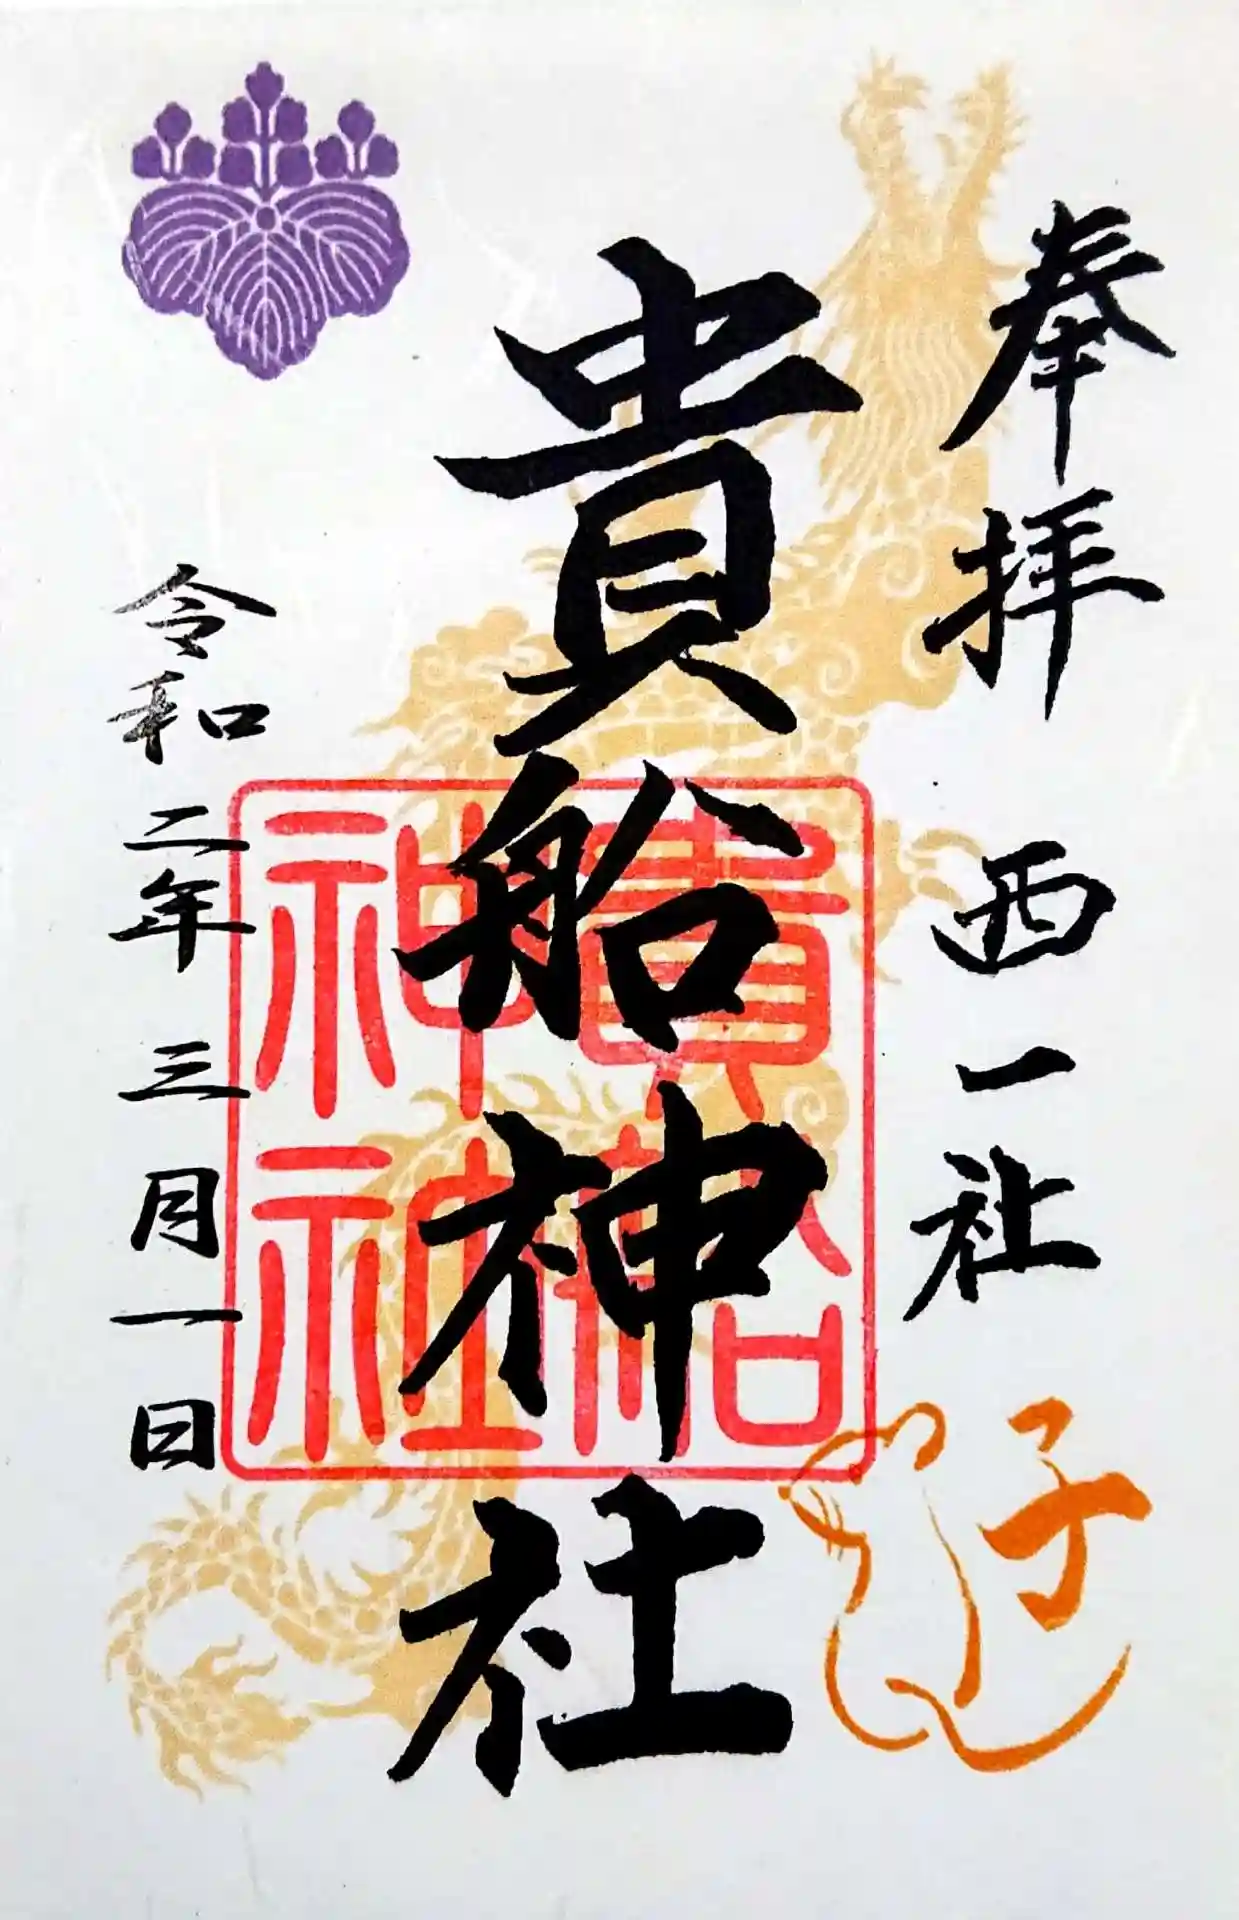 奉拝 西一社
子
貴船神社
貴船
神社
令和二年三月一日